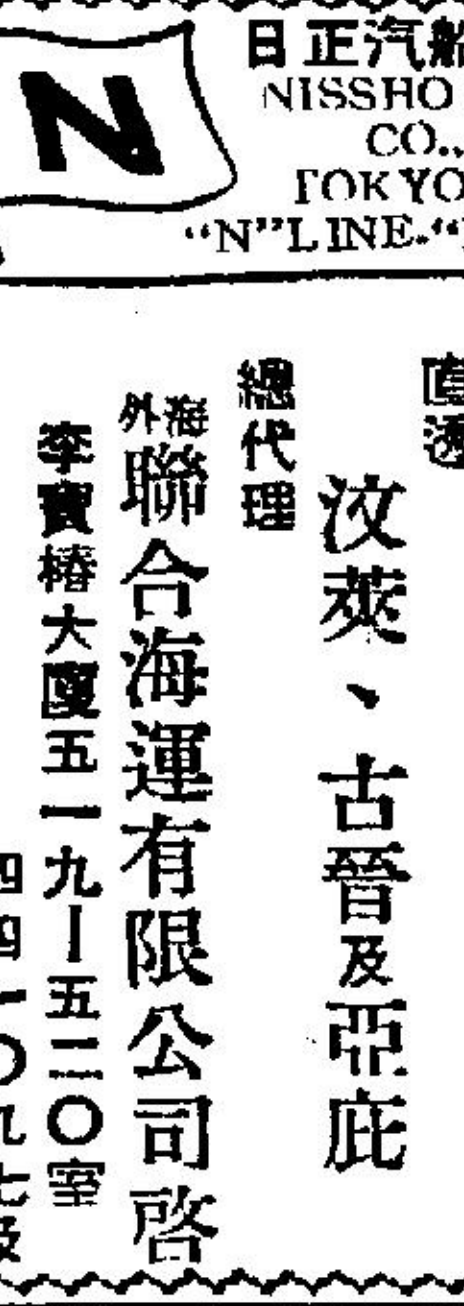 N
日正汽船
NISSHO
CO.,
TOKYO
“N”LINE.“
直透
汶萊、古晉及亞庇
總代理
海外聯合海運有限公司啓
李寶椿大廈五一九—五二〇室
四四一〇九七及